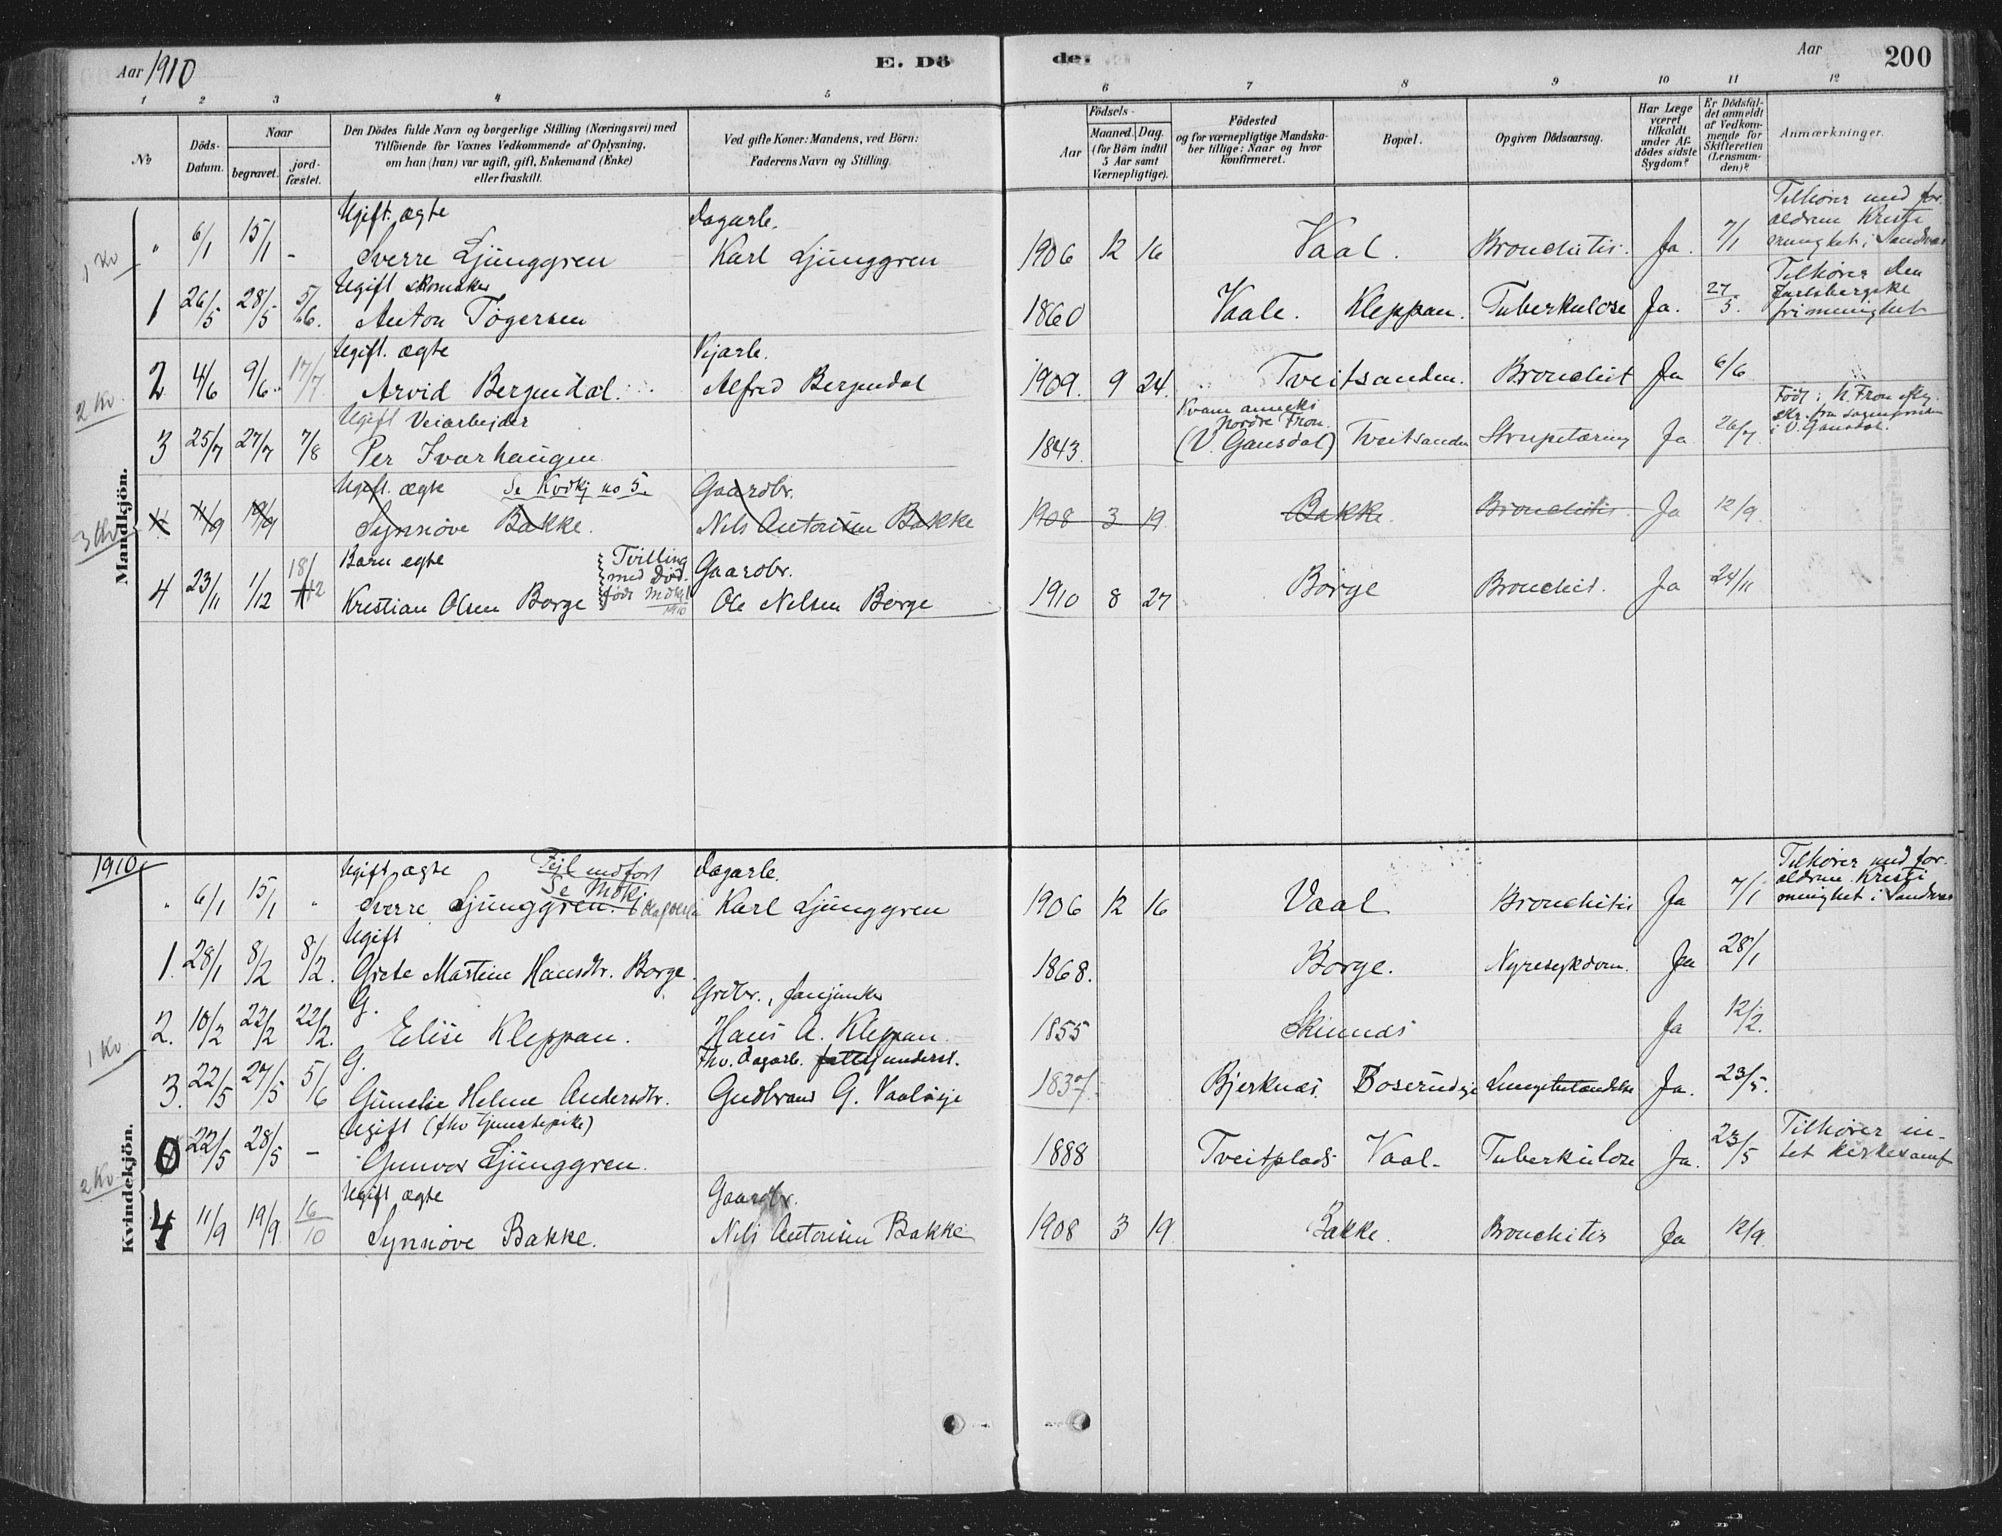 Aar 1910
E. Döde.
Aar
200
1 2 3 4 5 6 7 8 9 10 11 12
No
Döds-Datum.
Naar
begravet.
jord-fæstet.
Den Dödes fulde Navn og borgerlige Stilling (Næringsvei) med
Tilföiende for Voxnes Vedkommende af Oplysning,
om han (hun) var ugift, gift, Enkemand (Enke)
eller fraskilt.
Ved gifte Koner: Mandens, ved Börn:
Faderens Navn og Stilling.
Födsels-
Aar
Maaned. Dag.
(for Börn indtil
5 Aar samt
Værnepligtige).
Födested
og for værnepligtige Mandska-
ber tillige: Naar og hvor
konfirmeret.
Bopæl.
Opgiven Dödsaarsag.
Har Læge
været
tilkaldt
under Af-
dödes sidste
Sygdom?
Er Dödsfal-
det anmeldt
af Vedkom-
mende for
Skifteretten
(Lensman-
den)?
Anmærkninger.
Mandkjön.
1 Kv
Ugift. ægte Dagarb. Tilhører med for-
" 6/1 15/1 - Sverre Ljunggren Karl Ljunggren 1906 12 16 Vaal. Bronchitis. Ja. 7/1 ældrene Kristi
menighet i Sandvær
Ugift skomaker Tilhører Den
1 26/5 28/5 5/6. Anton Togersen 1860 Vaale. Kleppan. Tuberkulose Ja. 27/5. Jarlsbergske
frimenighet
Ugift. ægte Vejarb.
2 4/6 9/6. 17/7 Arvid Bergendal. Alfred Bergendal 1909. 9 24. Tveitsanden. Bronchit Ja 6/6
2 Kv.
Ugift Veiarbejder Kvam anneks Nordre Fron. Født i N. Fron
3 25/7 27/7 7/8 Per Ivarhaugen 1843. (V. Gausdal) Tveitsanden Strupetæring Ja 26/7. i V. Gausdal.
Ugift. ægte Se Kvdkj no 5. Gaardbr.
3 Kv
11/9 19/9 Synnøve Bakke. Nils Antonsen Bakke 1908 3 19 Bakke. Bronchitis Ja 12/9.
Barn egte Tvilling Gaardbr.
med Död.
4 23/11 1/12 18/12 Kristian Olsen Borge født Mdkj 1 1910 Ole Nilsen Borge 1910 8 27 Börge Bronchit. Ja 24/11
1910
Kvindekjön.
Ugift ægte Fejl indført Dagarb. Tilhører med for-
Se Mdkj
" 6/1 15/1 " Sverre Ljunggren. Karl Ljunggren 1906 12 16 Vaal Bronchitis Ja 7/1 ældrene Kristi
menighet i Sandvær
Ugift
1. 28/1 8/2 8/2. Grete Martine Hansdtr. Borge. 1868. Borge. Nyresykdom. Ja 28/1
G. Grdbr., fanjunker
2. 10/2 22/2 22/2. Elise Kleppan. Hans A. Kleppan. 1855 Skinnes Ja 12/2.
1 Kv.
G. Fhv. dagarb. fattigunderst.
3. 22/5 27/5 5/6 Gunelie Helene Andersdtr. Gudbrand G. Vaalöie 1837 Bjerknæs. Boserudeje Lungebetændelse Ja. 23/5.
Ugift (fhv tjenestepike)
0 22/5 28/5 - Gunvor Ljunggren. 1888 Tveitplads Vaal. Tuberkulose Ja. 23/5 Tilhører in-
tet kirkesamf
2 Kv.
Ugift ægte Gaardbr.
4 11/9 19/9 16/10 Synnöve Bakke. Nils Antonsen Bakke 1908 3 19. Bakke. Bronchitis Ja 12/9.